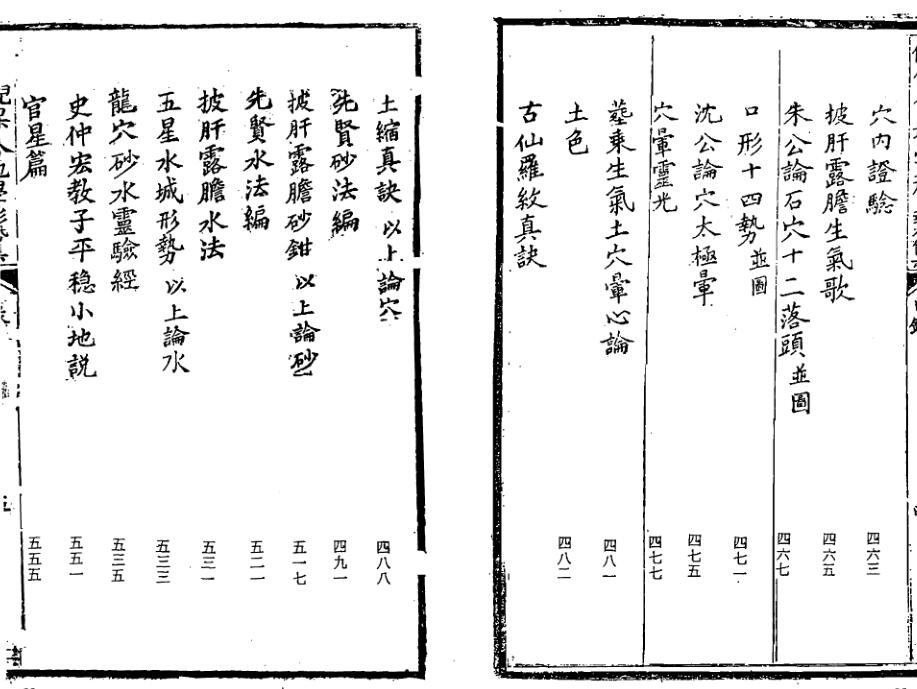 穴內證驗 四六三
披肝露膽生氣歌 四六五
朱公論石穴十二落頭並圖 四六七
口形十四勢並圖 四七一
沈公論穴太極暈 四七五
穴暈靈光 四七七
塟乘生氣土穴暈心論 四八一
土色 四八二
古仙羅紋真訣
土縮真訣 以上論穴 四八八
先賢砂法編 四九一
披肝露膽砂鉗 以上論砂 五一七
先賢水法編 五二一
披肝露膽水法 五三一
五星水城形勢 以上論水 五三三
龍穴砂水靈驗經 五三五
史仲宏教子平穩小地説 五五一
官星篇 五五五